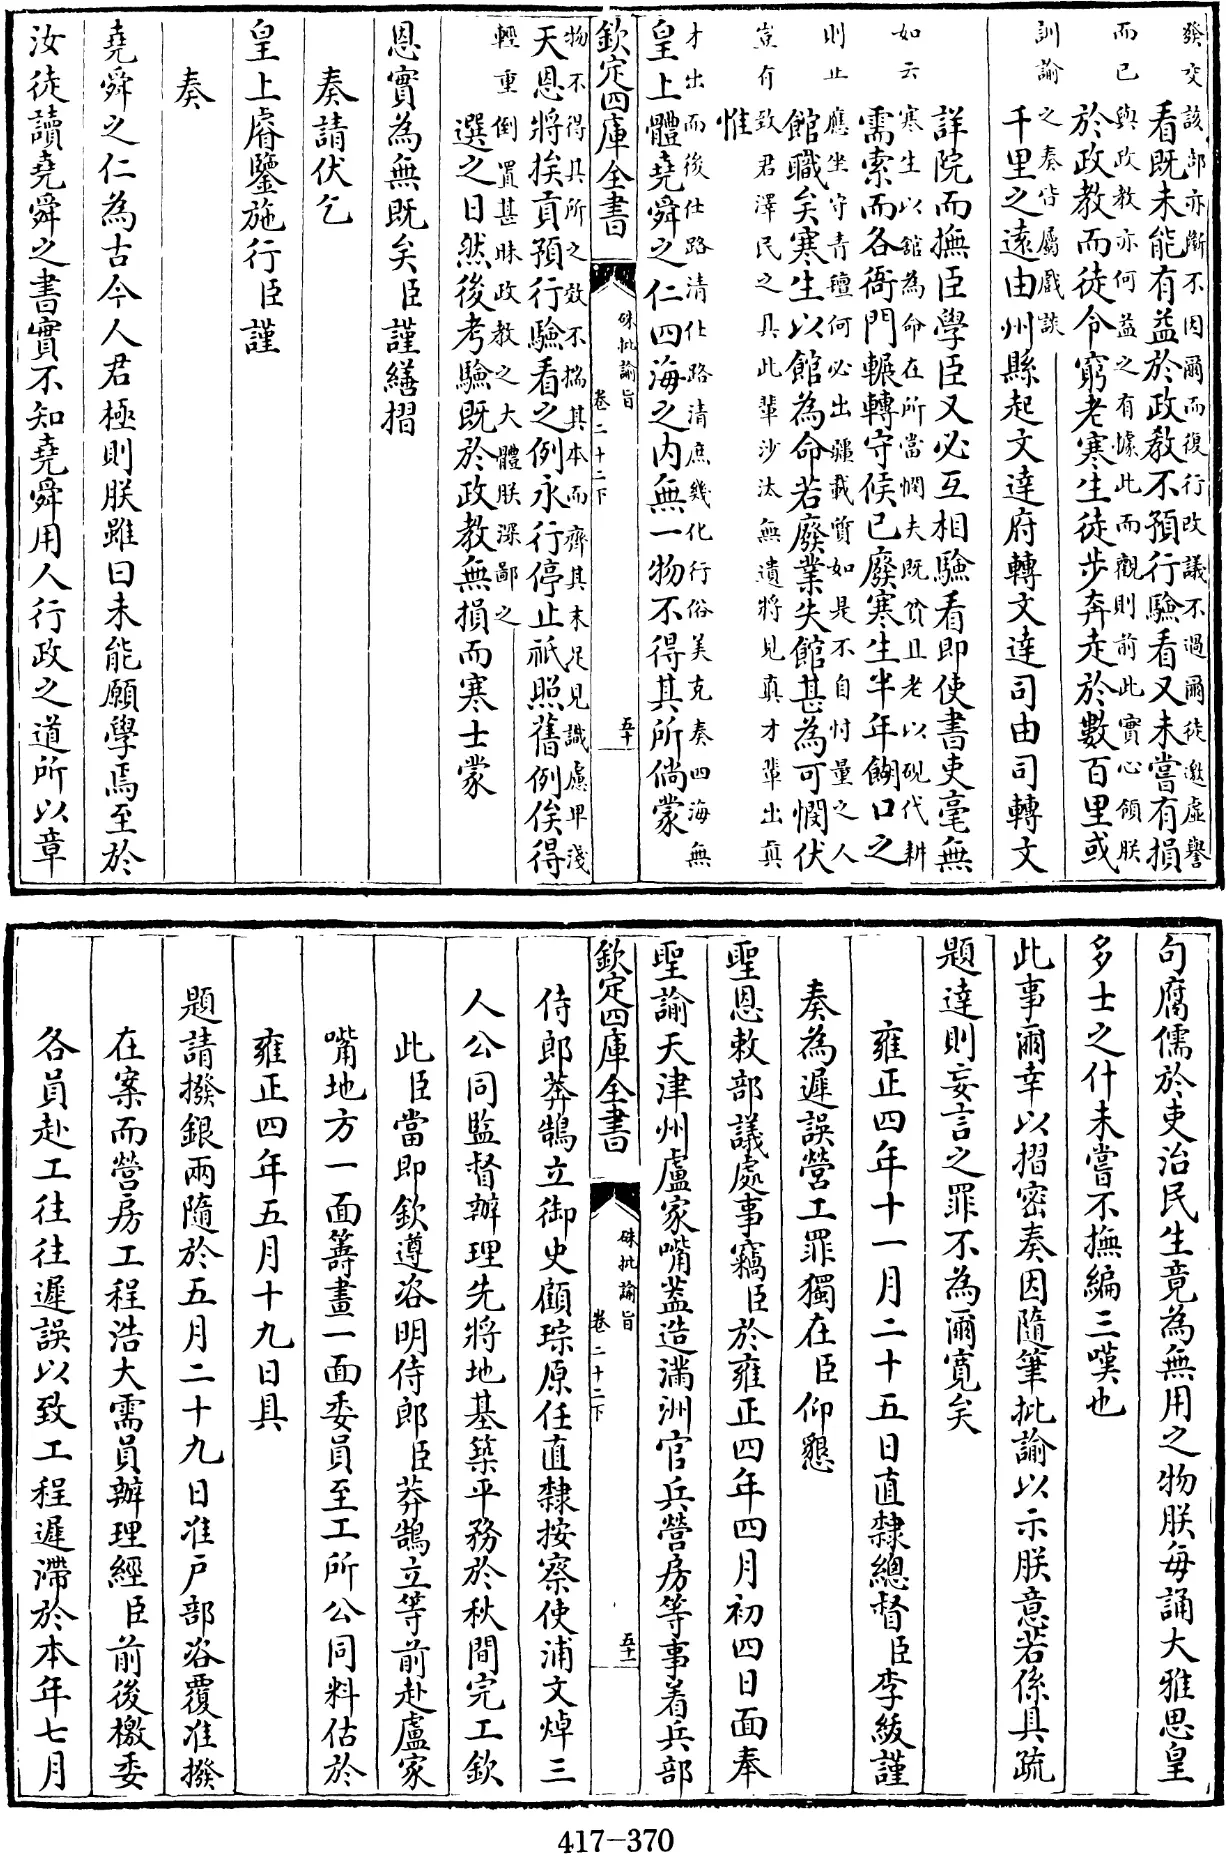 發交該部亦斷不因爾而復行改議不過爾徒邀虛譽
看既未能有益於政教不預行驗看又未嘗有損
而已與政教亦何益之有據此而觀則前此實心領朕
於政教而徒令窮老寒生徒步奔走於數百里或
訓諭之奏皆屬戲談
千里之遠由州縣起文達府轉文達司由司轉文
詳院而撫臣學臣又必互相驗看即使書吏毫無
如云寒生以舘為命在所當憫夫既貧且老以硯代耕
需索而各衙門輾轉守候已廢寒生半年餬口之
則止應坐守青氊何必出疆載質如是不自忖量之人
館職矣寒生以館為命若廢業失館甚為可憫伏
豈有致君澤民之具此輩沙汰無遺將見真才輩出真
惟
才出而後仕路清仕路清庶幾化行俗美克奏四海無
皇上體堯舜之仁四海之內無一物不得其所倘蒙
欽定四庫全書
硃批諭旨
卷二十二下
五十
物不得其所之效不揣其本而齊其末足見識慮卑淺
天恩將挨貢預行驗看之例永行停止祇照舊例俟得
輕重倒置甚昧政教之大體朕深鄙之
選之日然後考驗既於政教無損而寒士蒙
恩實為無既矣臣謹繕摺
奏請伏乞
皇上睿鑒施行臣謹
奏
堯舜之仁為古今人君極則朕雖曰未能願學焉至於
汝徒讀堯舜之書實不知堯舜用人行政之道所以章
句腐儒於吏治民生竟為無用之物朕每誦大雅思皇
多士之什未嘗不撫編三嘆也
此事爾幸以摺密奏因隨筆批諭以示朕意若係具疏
題達則妄言之罪不為爾寛矣
雍正四年十一月二十五日直隸總督臣李紱謹
奏為遲誤營工罪獨在臣仰懇
聖恩敕部議處事竊臣於雍正四年四月初四日面奉
聖諭天津州盧家嘴蓋造滿洲官兵營房等事着兵部
欽定四庫全書
硃批諭旨
卷二十二下
五十一
侍郎莽鵠立御史顧琮原任直隸按察使浦文焯三
人公同監督辦理先將地基築平務於秋間完工欽
此臣當即欽遵咨明侍郎臣莽鵠立等前赴盧家
嘴地方一面籌畫一面委員至工所公同料估於
雍正四年五月十九日具
題請撥銀兩隨於五月二十九日准戶部咨覆准撥
在案而營房工程浩大需員辦理經臣前後檄委
各員赴工往往遲誤以致工程遲滯於本年七月
417-370